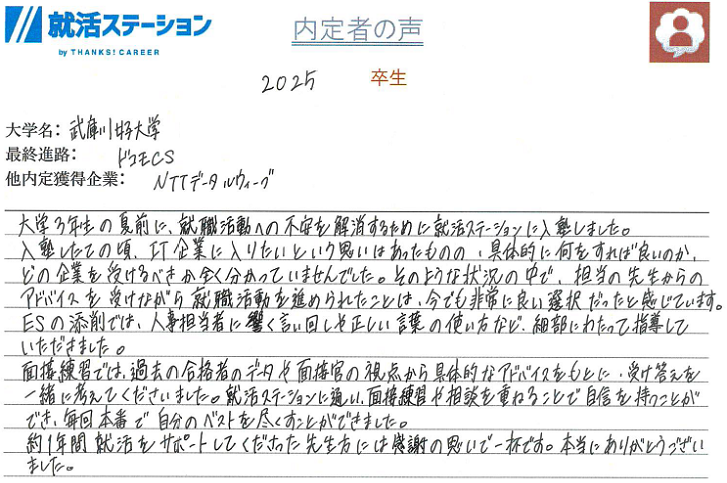 就活ステーション
by THANKS! CAREER
内定者の声
2025 卒生
大学名: 武庫川女子大学
最終進路: ドコモCS
他内定獲得企業: NTTデータルウィーブ
大学3年生の夏前に、就職活動への不安を解消するために就活ステーションに入塾しました。
入塾したての頃、IT企業に入りたいという思いはあったものの、具体的に何をすれば良いのか、
どの企業を受けるべきか全く分かっていませんでした。そのような状況の中で、担当の先生からの
アドバイスを受けながら就職活動を進められたことは、今でも非常に良い選択だったと感じています。
ESの添削では、人事担当者に響く言い回しや正しい言葉の使い方など、細部にわたって指導して
いただきました。
面接練習では、過去の合格者のデータや面接官の視点から具体的なアドバイスをもとに、受け答えを
一緒に考えてくださいました。就活ステーションに通い、面接練習や相談を重ねることで自信を持つことが
でき、毎回本番で自分のベストを尽くすことができました。
約1年間就活をサポートしてくださった先生方には感謝の思いで一杯です。本当にありがとうござい
ました。